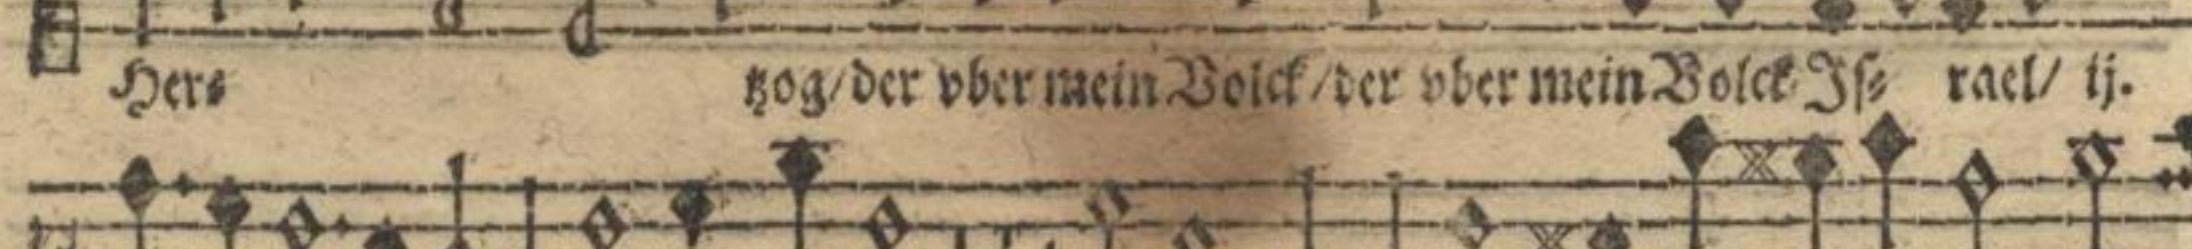 Her⸗ tzog/der vber mein Volck/der vber mein Volck Iſ⸗ rael/ ij.